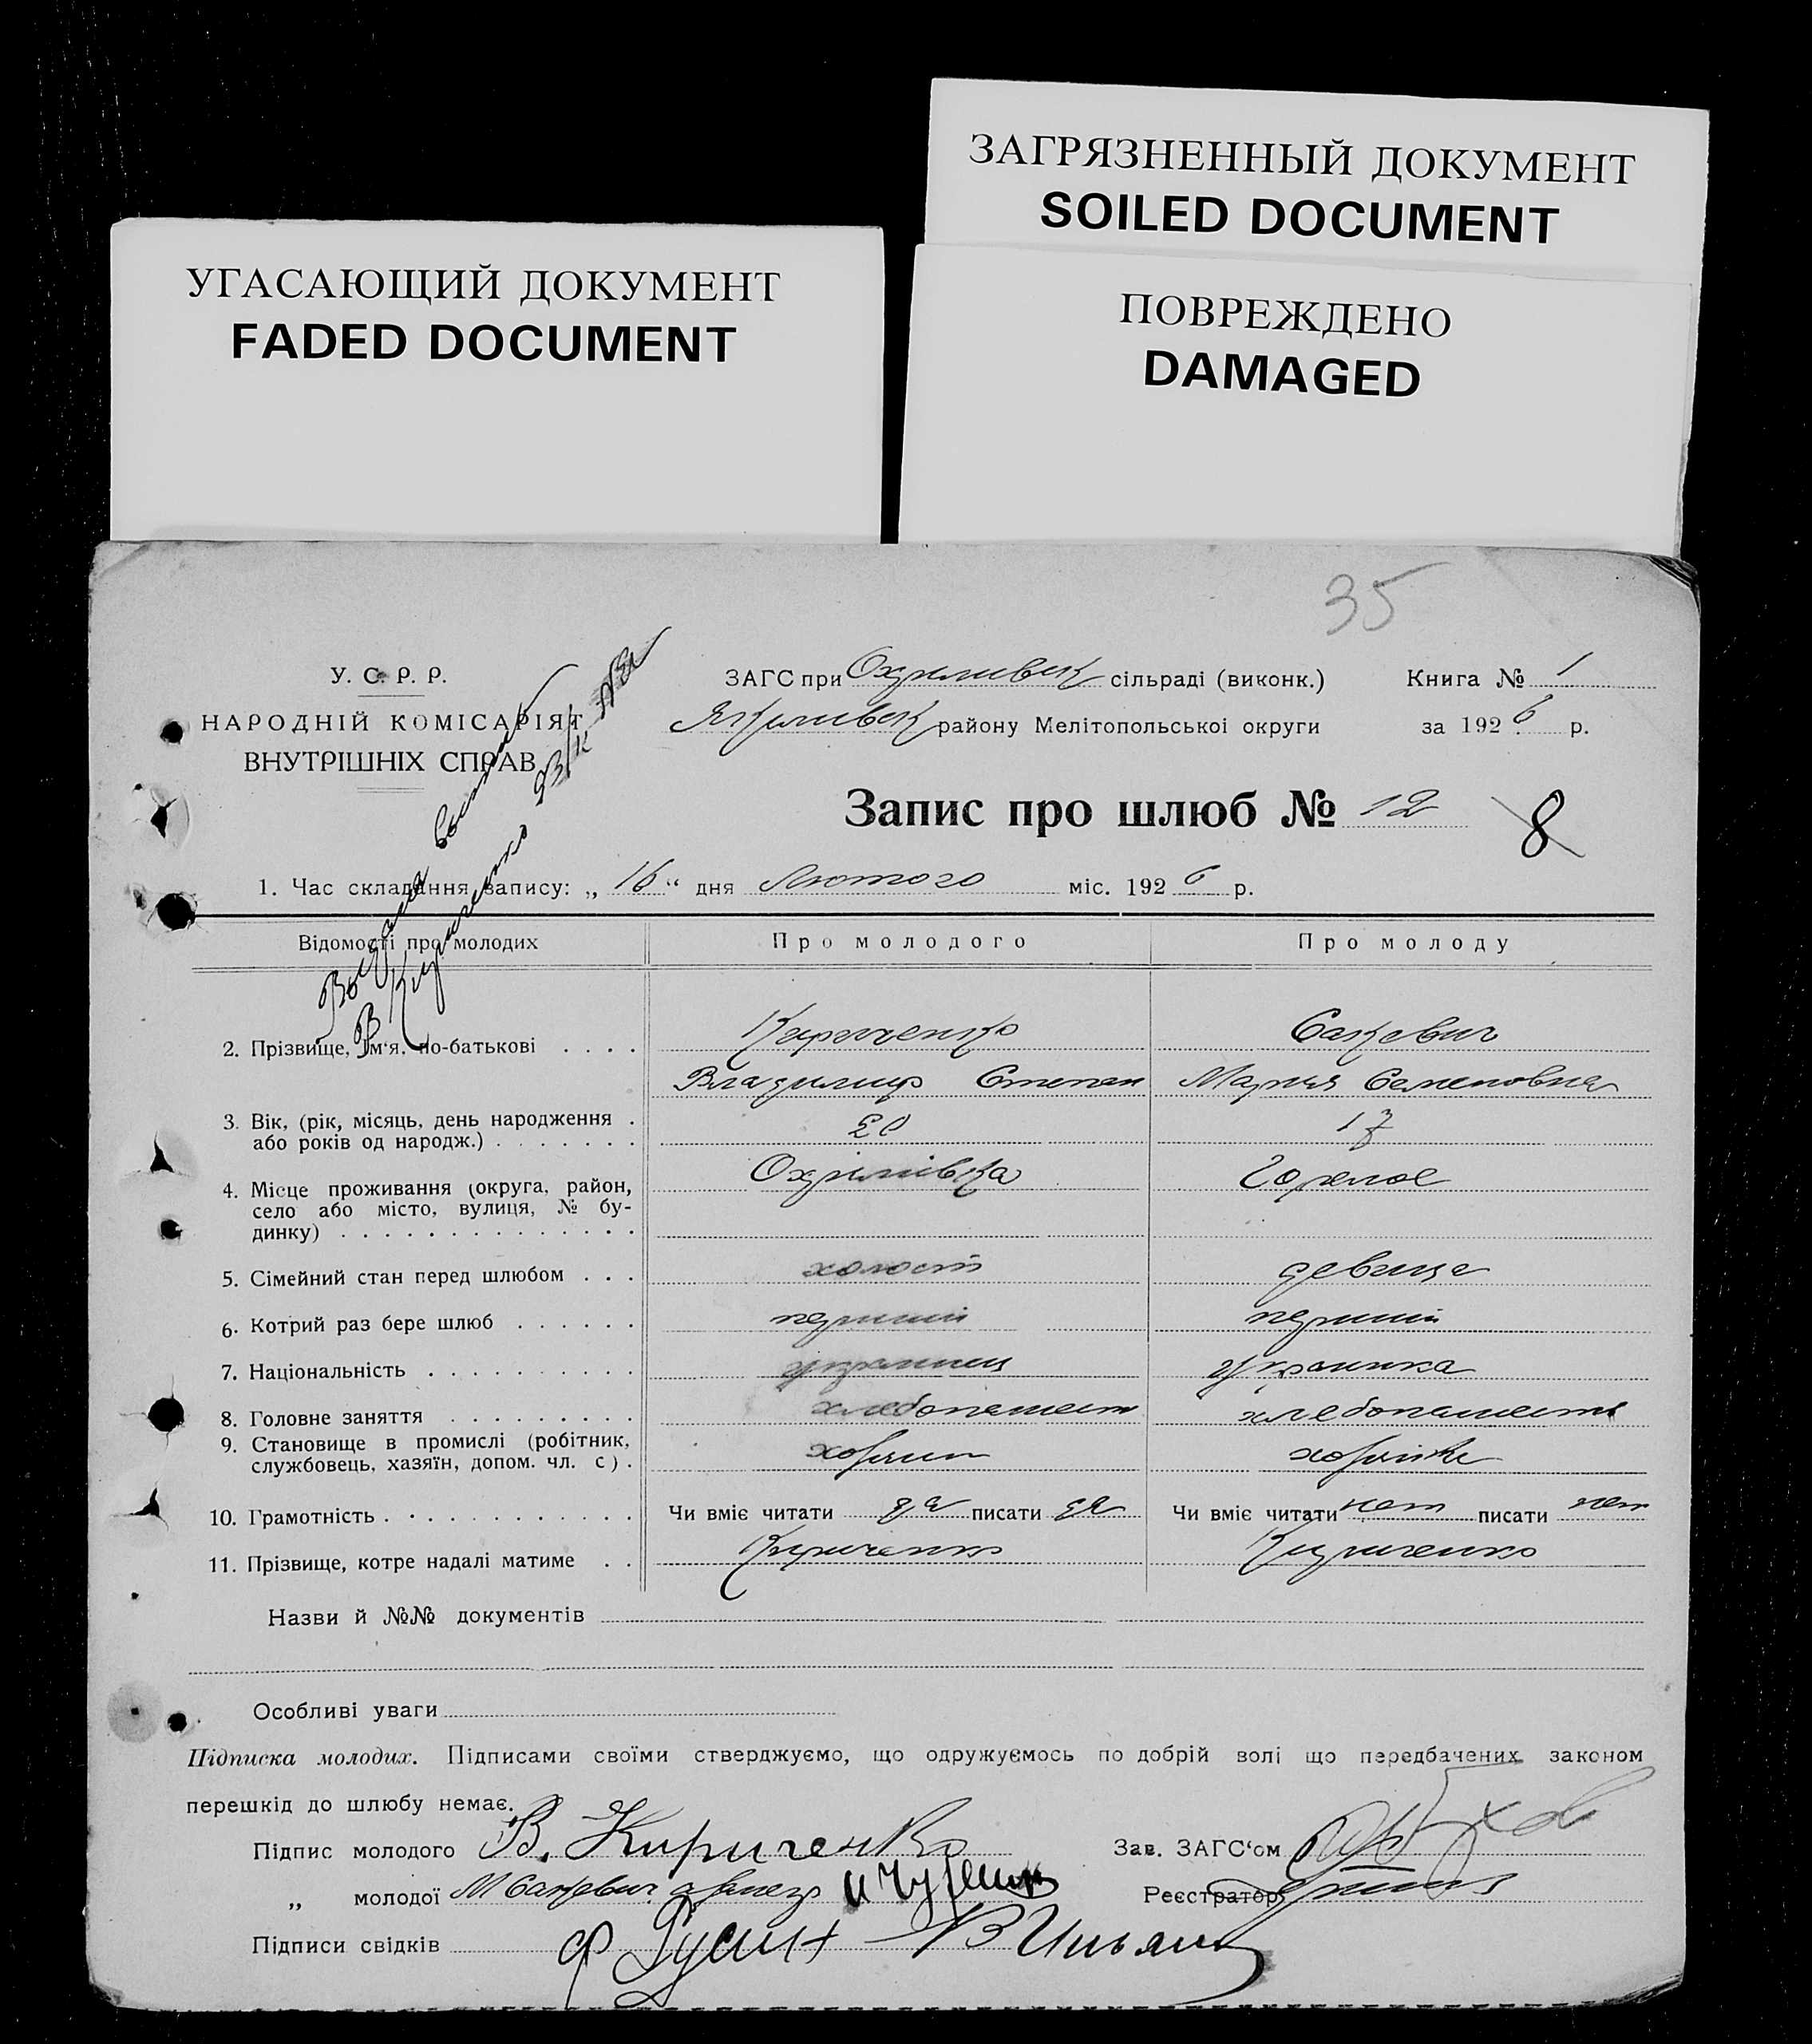 ЗАГРЯЗНЕННЫЙ ДОКУМЕНТ
SOILED DOCUMENT
УГАСАЮЩИЙ ДОКУМЕНТ
FADED DOCUMENT
ПОВРЕЖДЕНО
DAMAGED
35
У. С. Р. Р.
НАРОДНІЙ КОМІСАРІЯТ
ВНУТРІШНІХ СПРАВ
ЗАГС при Охримівськ сільраді (виконк.) Книга № 1
Якимівськ району Мелітопольської округи за 1926 р.
Запис про шлюб № 12 8
1. Час складання запису: „16“ дня Лютого міс. 1926 р.
В Кириченко
Відомості про молодих Про молодого Про молоду
2. Прізвище, ім‘я, по-батькові . . . . Кириченко Сакевич
Владимир Степан Мария Семеновна
3. Вік, (рік, місяць, день народження . 20 17
або років од народж.) . . . . . . .
4. Місце проживання (округа, район, Охримівка Горелое
село або місто, вулиця, № бу-
динку) . . . . . . . . . . . . . .
5. Сімейний стан перед шлюбом . . . холост девица
6. Котрий раз бере шлюб . . . . . . перший перший
7. Національність . . . . . . . . . . украинец украинка
8. Головне заняття . . . . . . . . . хлебопашест хлебопашеств
9. Становище в промислі (робітник, хозяин хозяйка
службовець, хазяїн, допом. чл. с) .
10. Грамотність . . . . . . . . . . . . Чи вміє читати да писати да Чи вміє читати нет писати нет
11. Прізвище, котре надалі матиме . . Кириченко Кириченко
Назви й №№ документів
Особливі уваги
Підписка молодих. Підписами своїми стверджуємо, що одружуємось по добрій волі що передбачених законом
перешкід до шлюбу немає.
Підпис молодого В. Кириченко Зав. ЗАГС‘ом
„ молодої М Сакевич Реєстратор
Підписи свідків